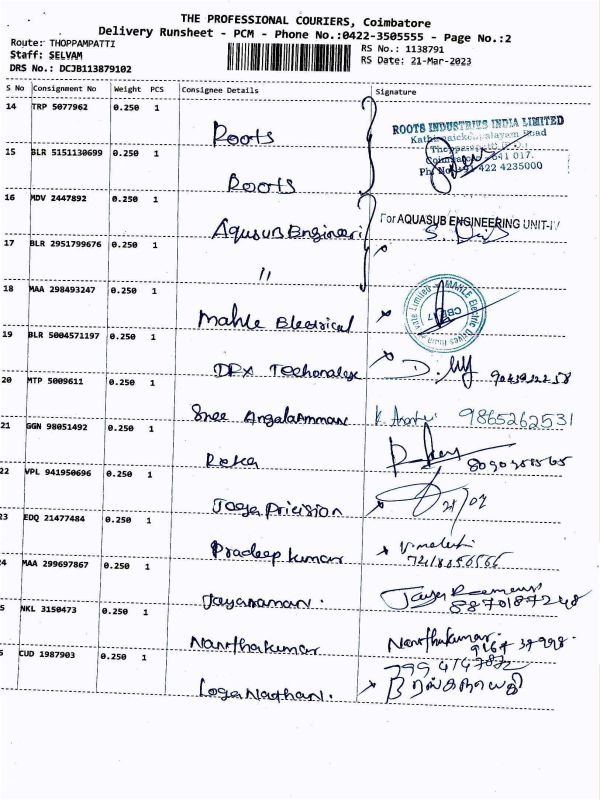 THE PROFESSIONAL COURIERS, Coimbatore
Delivery Runsheet - PCM - Phone No.:0422-3505555 - Page No.:2
Route: THOPPAMPATTI
RS No.: 1138791
Staff: SELVAM
RS Date: 21-Mar-2023
DRS No.: DCJB113879102
S No Consignment No Weight PCS Consignee Details Signature
14 TRP 5077962 0.250 1
Roots
ROOTS INDUSTRIES INDIA LIMITED
Road
Coimbatore - 641 017.
Ph No +91 422 4235000
15 BLR 5151130699 0.250 1
Roots
16 MDV 2447892 0.250 1
Aqusub Engineeri
For AQUASUB ENGINEERING UNIT-IV
17 BLR 2951799676 0.250 1
"
18 MAA 298493247 0.250 1
Mahle Electrical
MAHLE Electric Drives India Private Limited
19 BLR 5004571197 0.250 1
20 MTP 5009611 0.250 1
Sree Angalaamman
9865262531
21 GGN 98051492 0.250 1
22 VPL 941950696 0.250 1
Jaga Pricision
23 EDQ 21477484 0.250 1
Pradeep kumar
24 MAA 299697867 0.250 1
Jayaraman.
8870187248
25 NKL 3150473 0.250 1
Nanthakumar
Nanthakumar.
26 CUD 1987903 0.250 1
Loga Nathan.